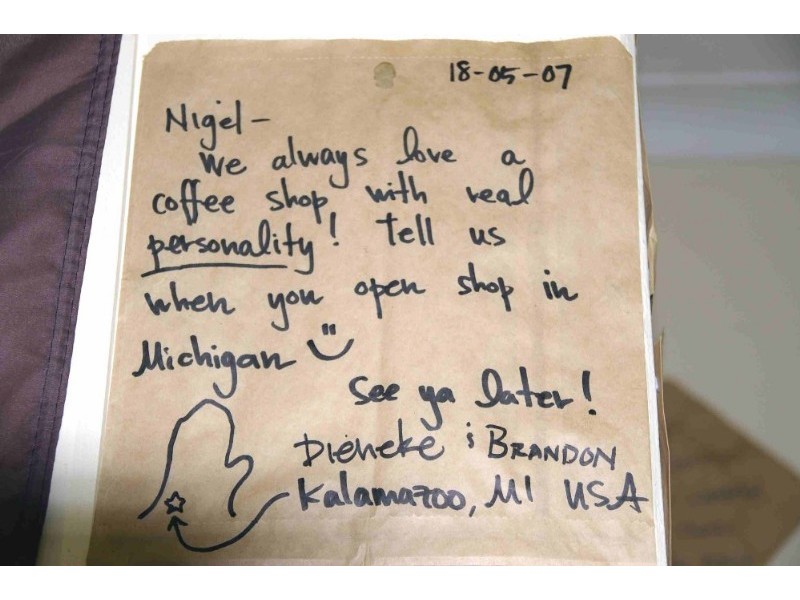 18-05-07
Nigel-
We always love a
coffee shop with real
personality! Tell us
when you open shop in
Michigan
See ya later!
Dieneke & BRANDON
Kalamazoo, MI USA